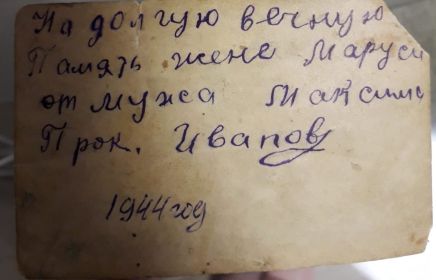 На долгую вечную
Память жене Маруси
от мужа Максима
Прок. Иванов
1944 год